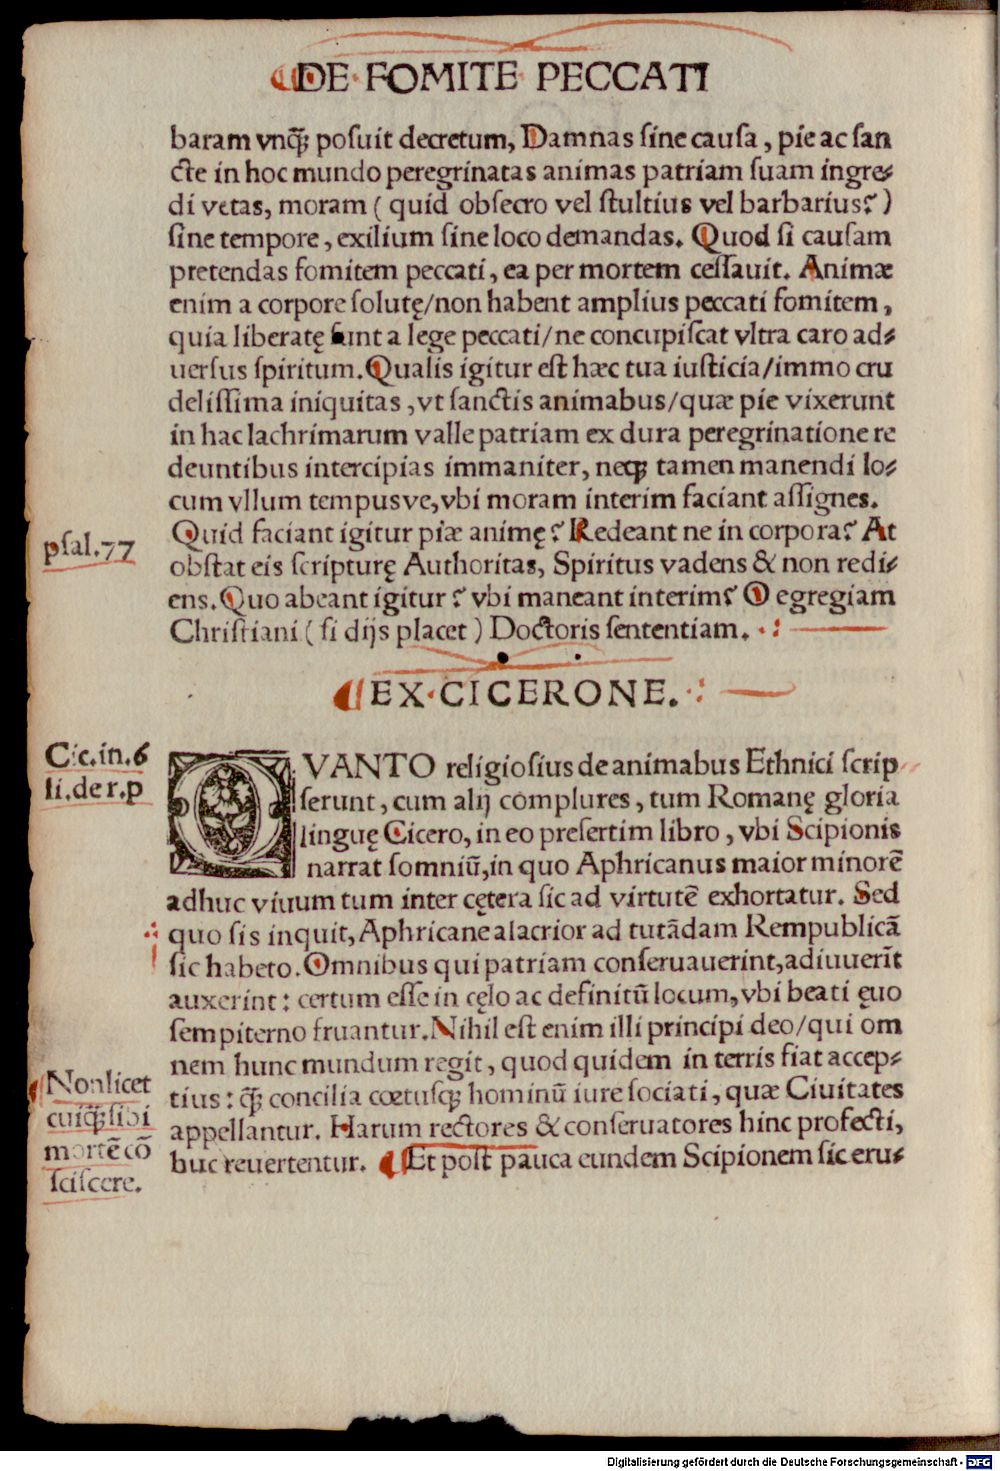 DE FOMITE PECCATI
baram vnq̃ꝫ posuit decretum, Damnas sine causa, pie ac san
cte in hoc mundo peregrinatas animas patriam suam ingre⸗
di vetas, moram ( quid obsecro vel stultius vel barbarius? )
sine tempore, exilium sine loco demandas. Quod si causam
pretendas fomitem peccati, ea per mortem cessauit. Animæ
enim a corpore solutę/non habent amplius peccati fomitem,
quia liberatę sunt a lege peccati/ne concupiscat vltra caro ad⸗
uersus spiritum. Qualis igitur est hæc tua iusticia/immo cru
delissima iniquitas, vt sanctis animabus/quæ pie vixerunt
in hac lachrimarum valle patriam ex dura peregrinatione re
deuntibus intercipias immaniter, neqꝫ tamen manendi lo⸗
cum vllum tempusve, vbi moram interim faciant assignes.
Quid faciant igitur piæ animę? Redeant ne in corpora? At
psal.77
obstat eis scripturę Authoritas, Spiritus vadens & non redi⸗
ens. Quo abeant igitur? vbi maneant interim? O egregiam
Christiani ( si dijs placet ) Doctoris sententiam.
EX CICERONE.
Cic.in.6
li.de r.p
QVANTO religiosius de animabus Ethnici scrip
serunt, cum alij complures, tum Romanę gloria
linguę Cicero, in eo presertim libro, vbi Scipionis
narrat somniũ, in quo Aphricanus maior minorẽ
adhuc viuum tum inter cętera sic ad virtutẽ exhortatur. Sed
quo sis inquit, Aphricane alacrior ad tutãdam Rempublicã
sic habeto. Omnibus qui patriam conseruauerint, adiuuerĩt
auxerint: certum esse in cęlo ac definitũ locum, vbi beati ęuo
sempiterno fruantur. Nihil est enim illi principi deo/qui om
nem hunc mundum regit, quod quidem in terris fiat accep⸗
tius: q̃ꝫ concilia cœtusqꝫ hominũ iure sociati, quæ Ciuitates
appellantur. Harum rectores & conseruatores hinc profecti,
huc reuertentur. Et post pauca eundem Scipionem sic eru⸗
Non licet
cuiq̃ꝫ sibi
mortẽ cõ
sciscere.
Digitalisierung gefördert durch die Deutsche Forschungsgemeinschaft - DFG